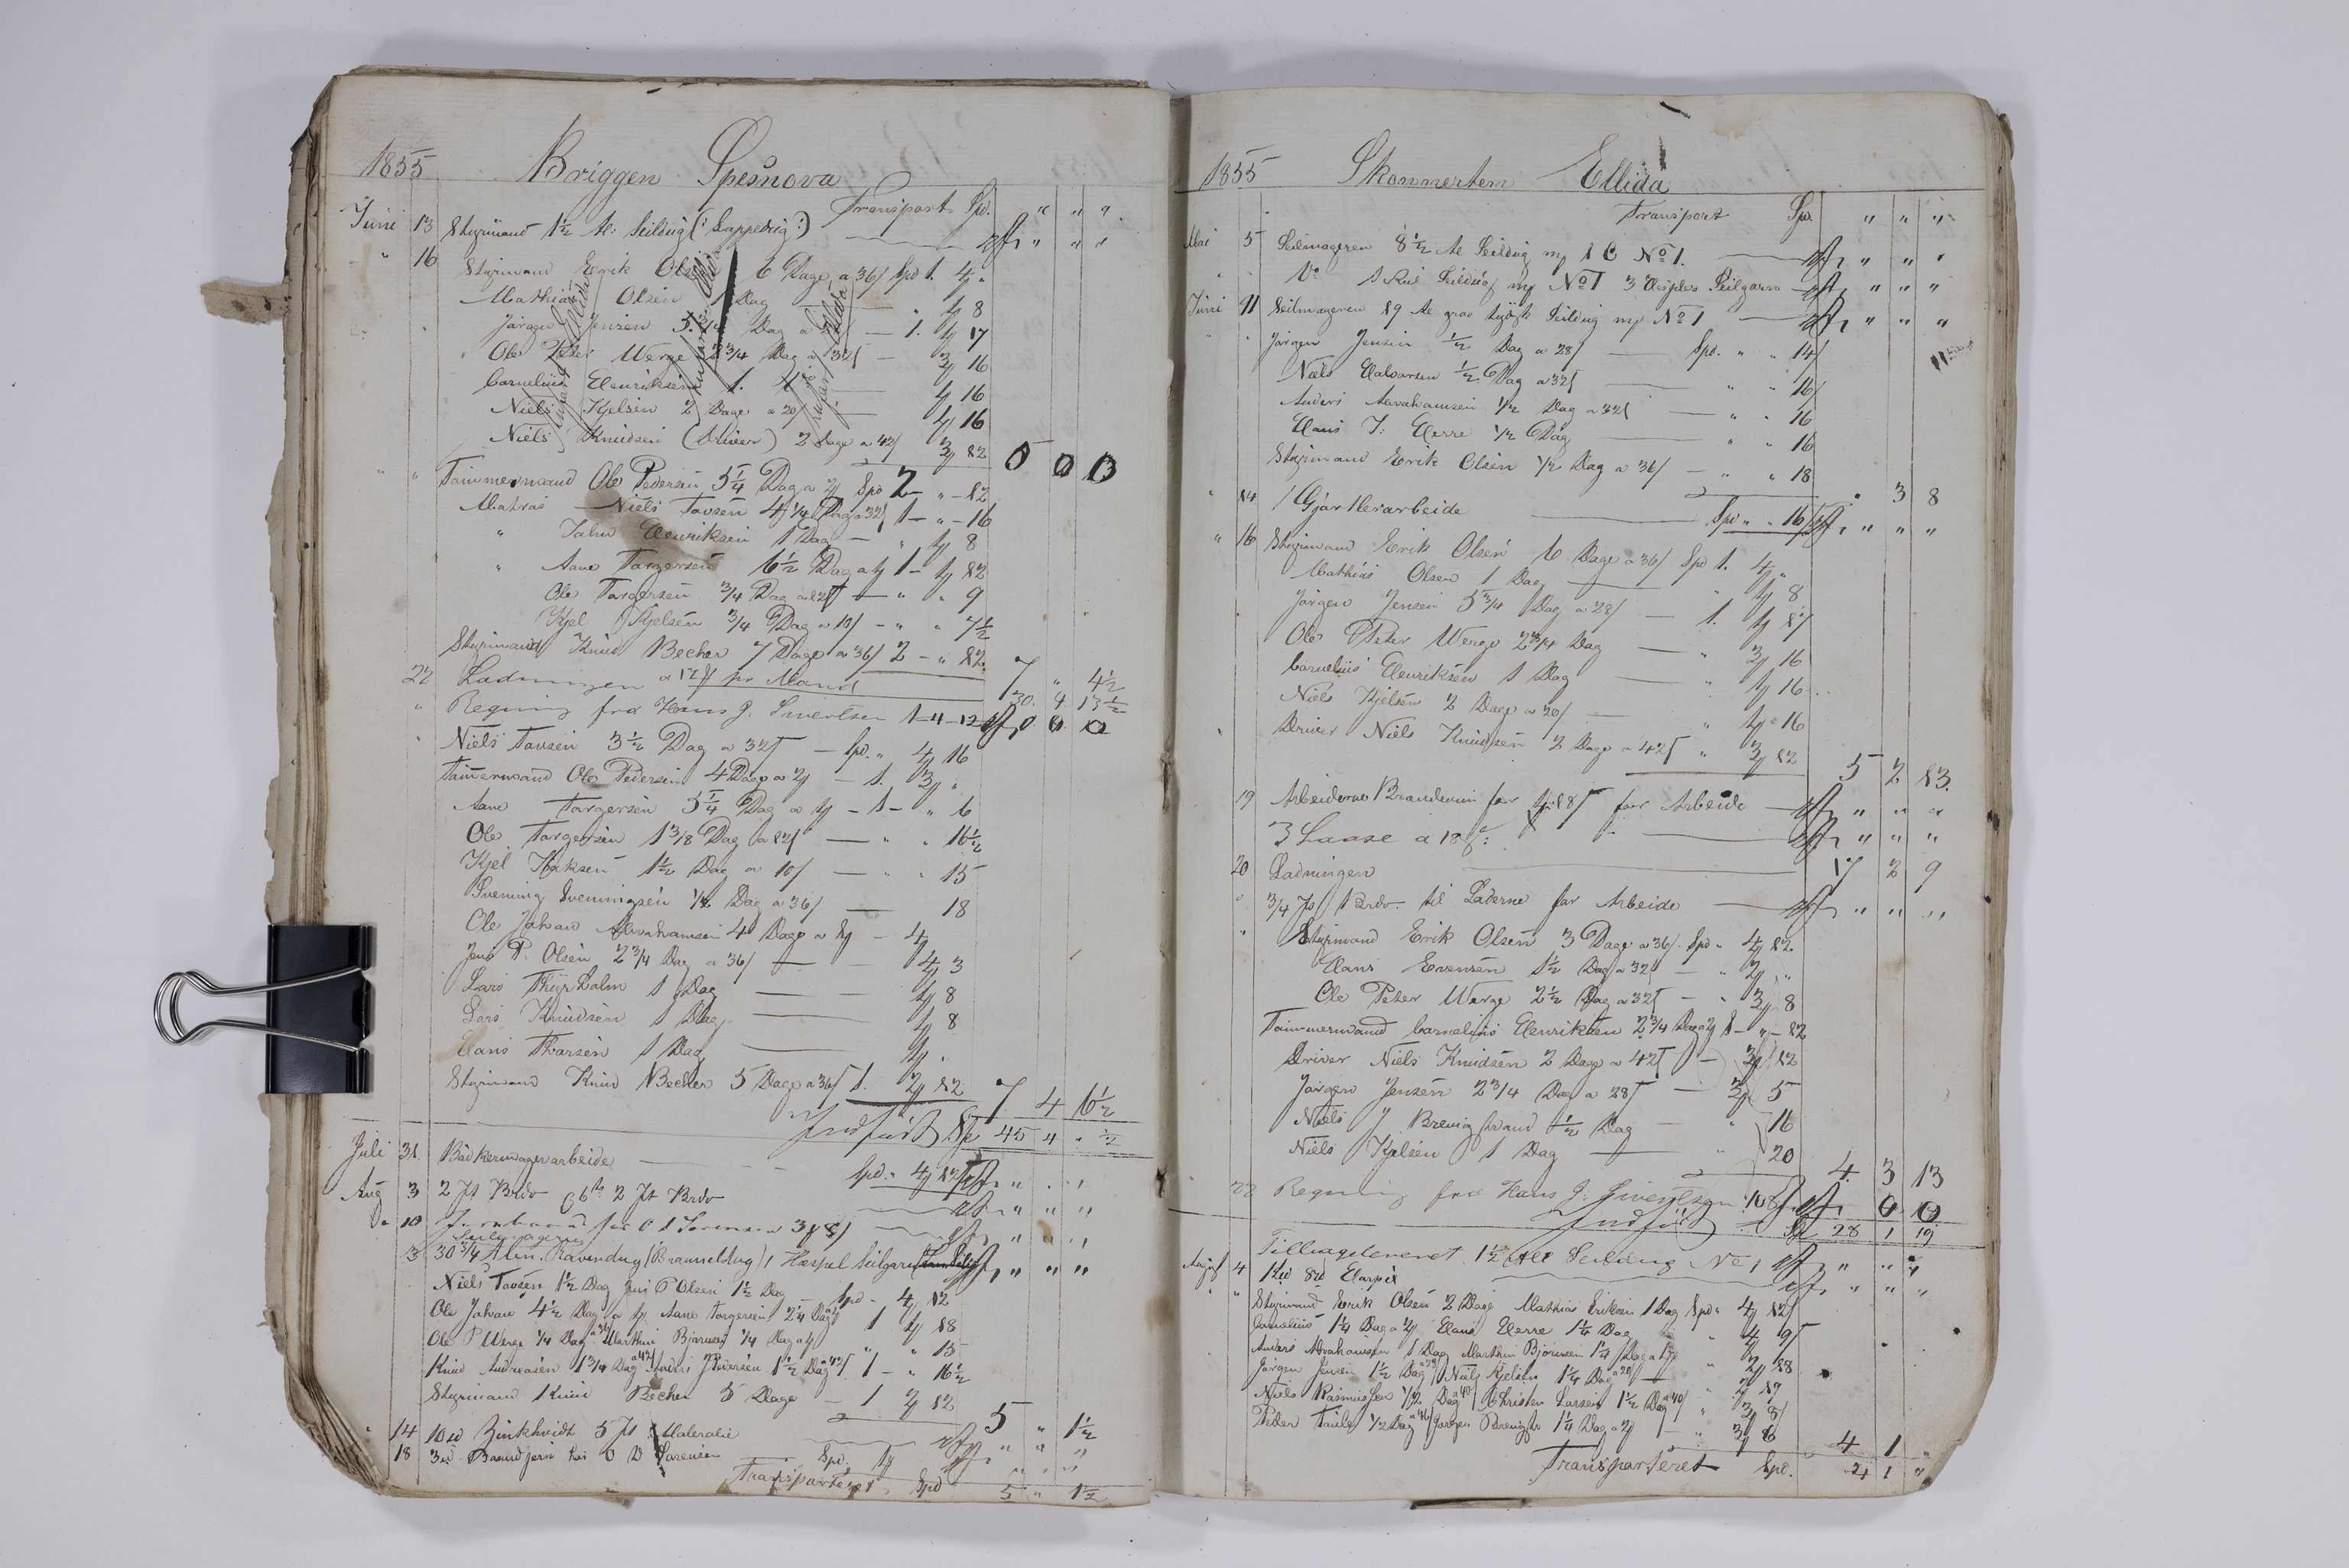 1855 Briggen Spesnova
Transport Spd. " " "
Juni 13 Styrmand 1½ Al: Seildug (: Lappedug :) " " "
" 16 Styrmand Erik Olsen 6 Dage a 36 Spd 1. 4 "
Mathias Olsen 1 Dag 1 8
Jörgen Jensen 5 3/4 Dag a 28 1. 1 17
Ole Peter Werge 2 3/4 Dag a 32 3 16
Cornelius Henriksen 1. 1 16
Niels Kjelsen 2 Dage a 20 1 16
Niels Knudsen (Driver) 2 Dage a 42 3 12 5 0 13
" " Tømmermand Ole Pedersen 5 1/4 Dag a 2 Spd 2 - " - 12
Matros Niels Tovsen 4 1/4 Dag a 32 1 - " - 16
" John Henriksen 1 Dag " 1 8
" Aane Torgersen 6½ Dag a 1 1 - 1 12
Ole Torgersen 3/4 Dag a 12 " " 9
Kjel Kjelsen 3/4 Dag a 10 " " 7½
Styrmand Knud Becker 7 Dage a 36 2 - " 12 7 " 4½
22 Ladningen a 12 pr Mand 30. 4. 13½
" Regning fra Hans J. Sivertsen 1-4-12 0 0 0
" Niels Tovsen 3½ Dag a 32 Spd. " 4 16
Tømmermand Ole Pedersen 4 Dage a 2 1. 3 "
Aane Torgersen 5 1/4 Dag a 1 1 - " 6
Ole Torgersen 1 3/8 Dag a 12 " " 16½
Kjel Haksen 1½ Dag a 10 " " 15
Svenning Svenningsen ½ Dag a 36 18
Ole Johan Abrahamsen 4 Dage a 1 4
Jens P. Olsen 2 3/4 Dag a 36 4 3
Lars Thyrholm 1 Dag 1 8
Lars Knudsen 1 Dag 1 8
Hans Thorsen 1 Dag 1 "
Styrmand Knud Becker 5 Dage a 36 1. 2 12 7 4 6½
Indført Sp 45 4 " ½
Juli 31 Bødkermagerarbeide Spd. " 4 12 " " "
Aug 3 2 Pt Brdv 2 Pt Brdv " " "
10 O D Sørensen " " "
Seilmageren
3 30 3/4 Alen Ravendug (Bramseildug) 1 Haspel Seilgarn " " "
Niels Tovsen 1½ Dag Jens P Olsen 1½ Dag Spd - 4 12
Ole Johan 4½ Dag a 1 Aane Torgersen 2 1/4 Dag 1 1 18
Ole P Werge 1/4 Dag Marthin Bjørnsen 1/4 Dag " " 15
Knud Andreasen 1 3/4 Dag Anders Pedersen 1½ Dag 1 - " 16½
Styrmand Knud Becker 5 Dage 1 2 12 5 " 1½
" 14 10 Zinkhvidt 5 Pt Maleralie " " "
18 3 Baandjern hos O D Sørensen Spd. " " "
Transporteret Spd 5 " 1½
1855 Skonnerten Ellida
Transport Spd. " " "
Mai 5 Seilmageren 8½ Al Seildug No 1. " " "
Do 1 Rul Seildug No 1 3 Haspler Seilgarn " " "
Juni 11 Seilmageren 19 Al graa tydsk Seildug No 1 " " "
Jörgen Jensen ½ Dag a 28 Spd. " " 14
Niels Halvorsen ½ Dag a 32 " " 16
Anders Abrahamsen ½ Dag a 32 " " 16
Hans J: Herre ½ Dag " " 16
Styrmand Erik Olsen ½ Dag a 36 " " 18 " 3 8
" 14 Gjørtlerarbeide Spd " " 16 " " "
" 16 Styrmand Erik Olsen 6 Dage a 36 Spd 1. 4 "
Mathias Olsen 1 Dag " 1 8
Jörgen Jensen 5 3/4 Dag a 28 1. 1 17
Ole Peter Werge 2 3/4 Dag " 3 16
Cornelius Henriksen 1 Dag " 1 16
Niels Kjelsen 2 Dage a 20 " 1 16
Driver Niels Knudsen 2 Dage a 42 " 3 12 5 2 13
19 Arbeiderne Brændeviin for for Arbeide " " "
3 Laase a 18 " " "
20 Ladningen 17 2 9
" 3/4 Pt Brdv. til Laderne for Arbeide " " "
" Styrmand Erik Olsen 3 Dage a 36 Spd " 4 12
Hans Evensen 1½ Dag a 32 " 2 "
Ole Peter Werge 2½ Dag a 32 " 3 8
Tømmermand Cornelius Henriksen 2 3/4 Dag a 2 1 - " - 12
Driver Niels Knudsen 2 Dage a 42 3 12
Jörgen Jensen 2 3/4 Dag a 28 3 5
Niels J Brevigstrand ½ Dag " 16
Niels Kjelsen 1 Dag " 20 4 3 13
22 Regning fra Hans J. Sivertsen 108 0 0
Indført Sp 28 1 19
August 4 Tilbageleveret 1½ All Seildug No 1 " " "
" " Harpix " " "
Styrmand Erik Olsen 2 Dage Mathias Eriksen 1 Dag Spd " 4 12
Cornelius 1 1/4 Dag a 2 Hans Herre 1 1/4 Dag " 4 9
Anders Abrahamsen 1 Dag Marthin Bjørnsen 1 1/4 Dag " 2 18
Jörgen Jensen 1½ Dag Niels Kjelsen 1 1/4 Dag " 2 17
Niels Rasmussen ½ Dag Christen Larsen 1½ Dag " 3 8
Peder ½ Dag Jørgen 1 1/4 Dag a 2 " 3 6 4 1 "
Transporteret Spd. 4 1 "